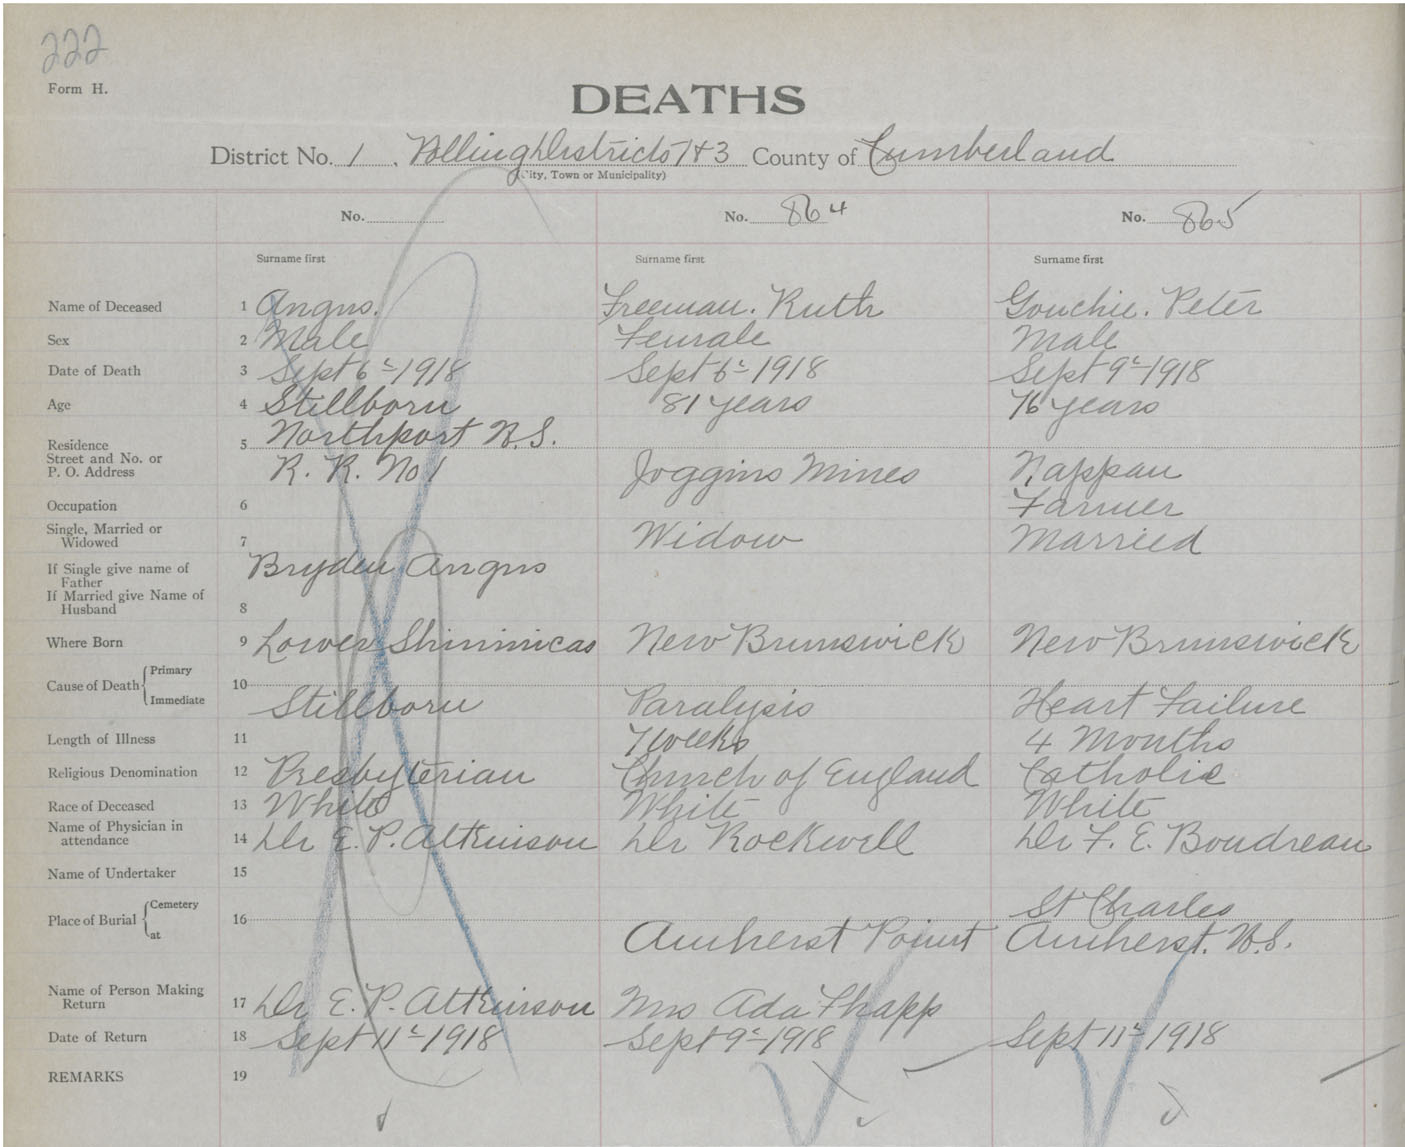 222
Form H.
DEATHS
District No. 1 . Polling Districts 1+3 County of Cumberland
(City, Town or Municipality)
No. No. 864 No. 865
Surname first Surname first Surname first
Name of Deceased 1 Angus. Freeman. Ruth Gouchie. Peter
Sex 2 Male Female Male
Date of Death 3 Sept 6th 1918 Sept 6th 1918 Sept 9th 1918
Age 4 Stillborn 81 years 76 years
Northport N.S.
Residence 5
Street and No. or
P. O. Address R. R. No 1 Joggins Mines Nappan
Occupation 6 Farmer
Single, Married or
Widowed 7 Widow Married
If Single give name of Bryden Angus
Father
If Married give Name of
Husband 8
Where Born 9 Lower Shinimicas New Brunswick New Brunswick
Cause of Death Primary 10
Immediate Stillborn Paralysis Heart Failure
Length of Illness 11 7 weeks 4 Months
Religious Denomination 12 Presbyterian Church of England Catholic
Race of Deceased 13 White White White
Name of Physician in
attendance 14 Dr E. P. Atkinson Dr Rockwell Dr F. E. Boudreau
Name of Undertaker 15
Place of Burial Cemetery 16 St Charles
at Amherst Point Amherst. N.S.
Name of Person Making
Return 17 Dr E. P. Atkinson Mrs Ada
Date of Return 18 Sept 11th 1918 Sept 9th 1918 Sept 11th 1918
REMARKS 19